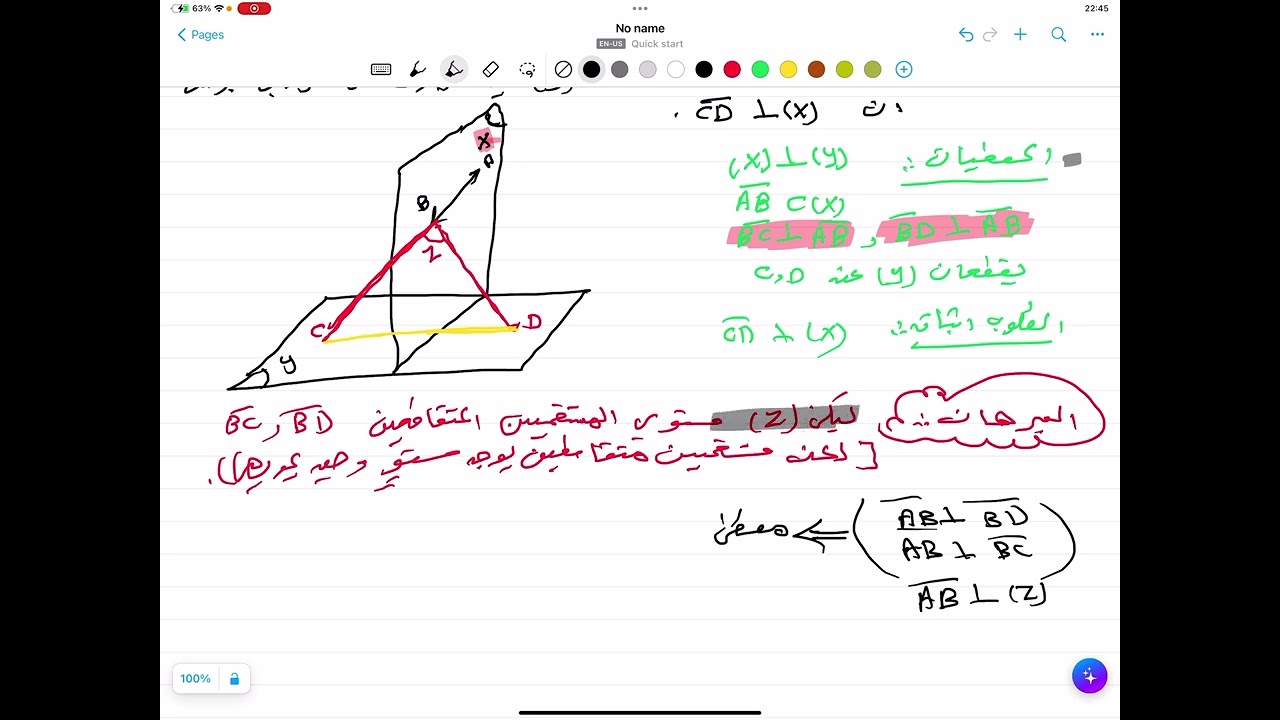 63%
22:45
Pages
No name
EN-US Quick start
ان CD ⊥ (X) .
المعطيات :: (X) ⊥ (Y)
AB ⊂ (X)
BC ⊥ AB , BD ⊥ AB
يقطعان (Y) عند C, D
المطلوب اثباته :: CD ⊥ (X)
X
A
B
Z
C
D
Y
البرهان :: ليكن (Z) مستوي المستقيمين المتقاطعين BC, BD
[ لكل مستقيمين متقاطعين يوجد مستوٍ وحيد يحويهما ].
AB ⊥ BD
AB ⊥ BC
معطى
AB ⊥ (Z)
100%